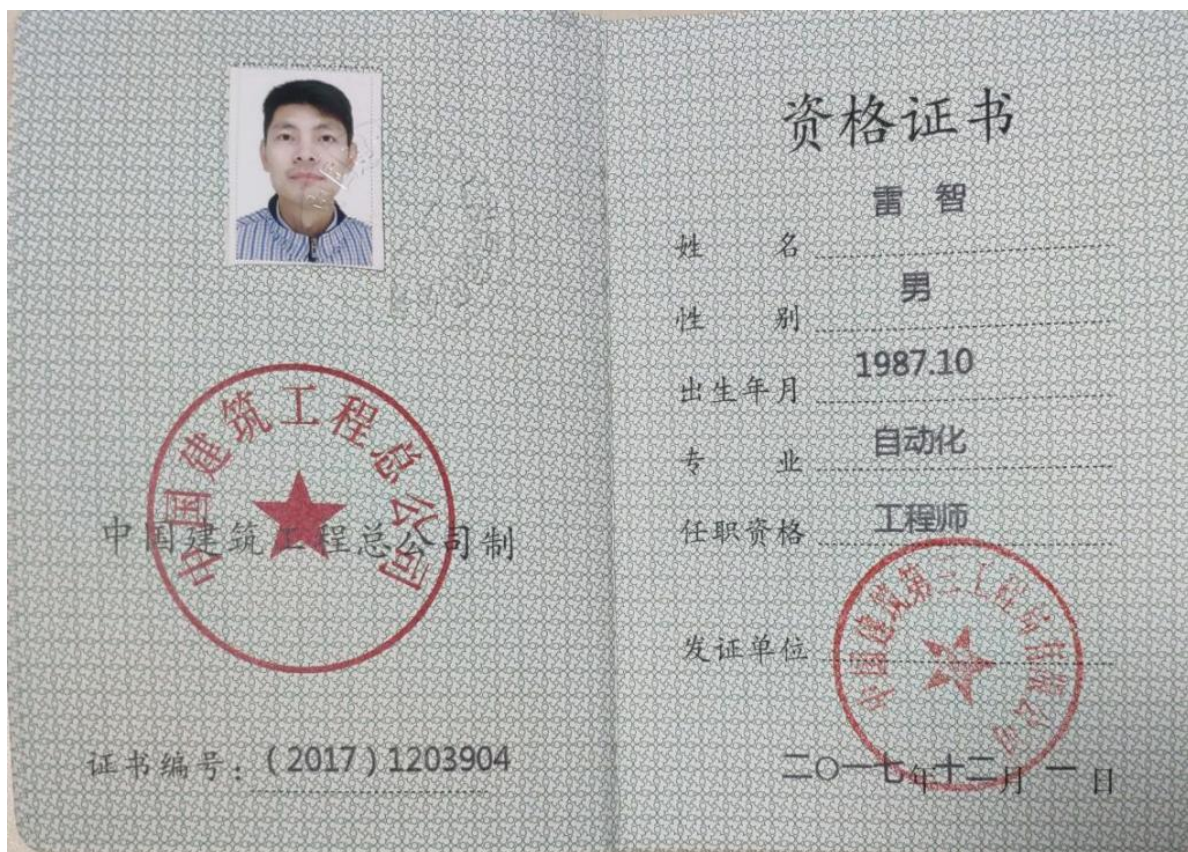 中国建筑工程总公司
中国建筑工程总公司制
证书编号：（2017）1203904
资格证书
姓 名 雷 智
性 别 男
出生年月 1987.10
专 业 自动化
任职资格 工程师
发证单位
中国建筑第三工程局有限公司
二〇一七年十二月一日